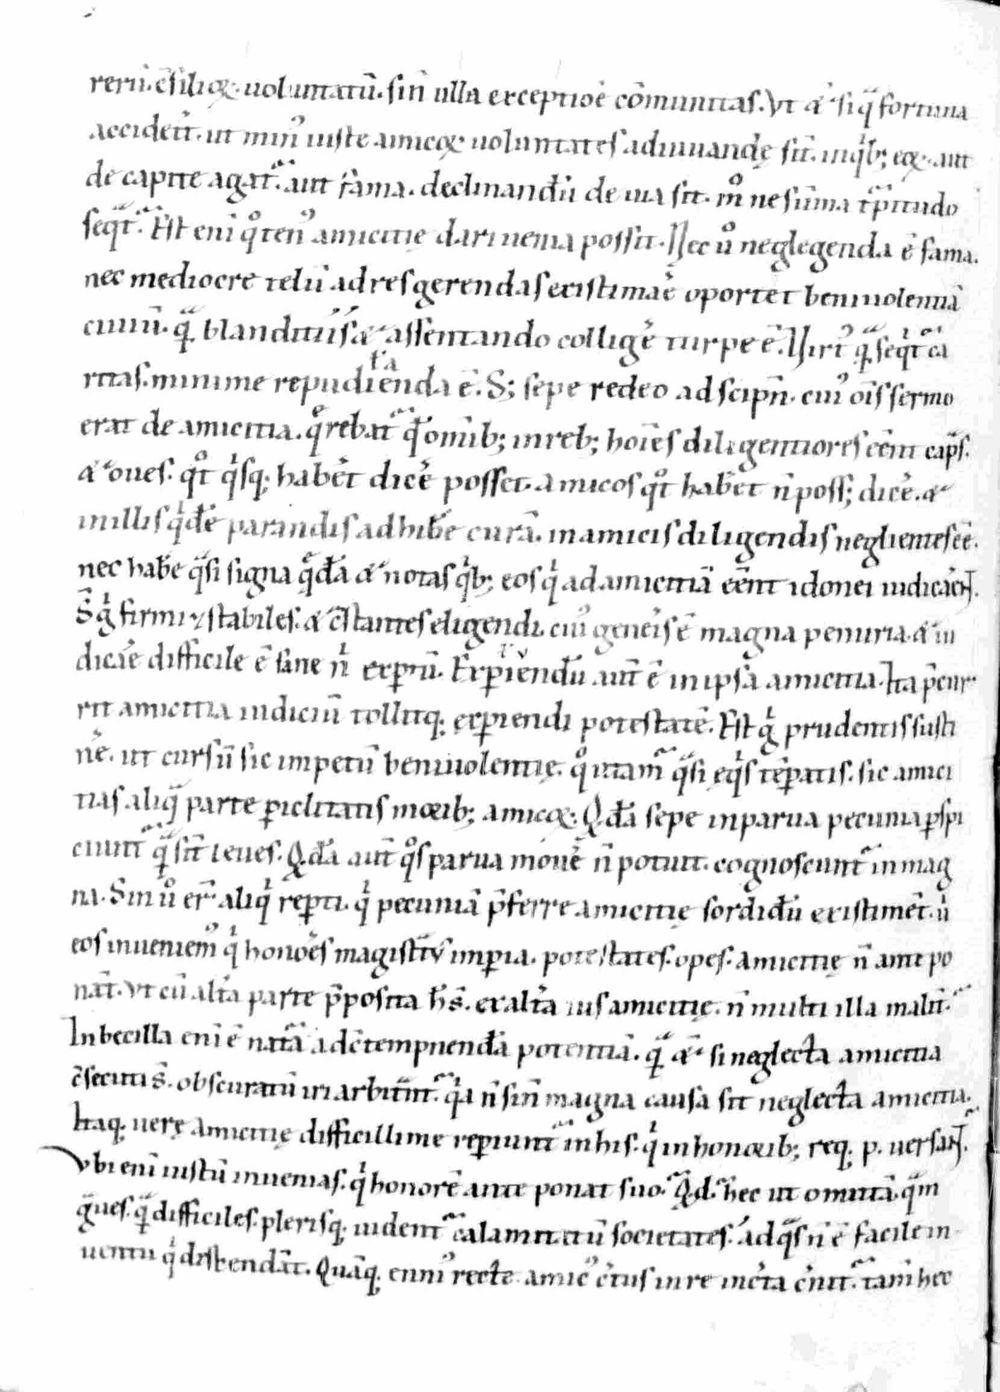 rerū. c̄silioꝝ. uoluntatū. sin̄ ulla exceptiōe cōmunitas. Vt & siq̄ fortuna
accideт̄. ut min᷒ iuste amicoꝝ uoluntates adiuuandę sīt. inqͥb; eoꝝ. aut
de capite agat᷑. aut fama. declinandū de uia sit. m̊ ne sūma t̄pitudo
seq̄t᷑. Est eni q̊ten᷒ amicitię dari uenia possit. Nec ů neglegenda ē fama.
nec mediocre telū ad res gerendas existimar̄e oportet beniuolentiā
ciuiū. q̄ blanditiis & assentando colliḡe turpe ē. Uirt᷒ q̄ seq̄t᷑ ca
ritas. minime repudienda ē. S; sepe redeo ad scipn̄. cui᷒ om̄s sermo
erat de amicitia. q̊rebat᷑ qd̄ om̄ib; in reb; hoīes diligentiores eēnt cap̄s.
& oues. q̊t qͥsq; haber̄et dic̄e posset. amicos q̊t haber̄et n̄ poss; dic̄e. &
in illis qͥdē parandis adhib̄e curā. in amicis diligendis neglientes eē.
nec hab̄e q̄si signa q̊dā & notas q̄b; eos qͥ ad amicitiā eēnt idonei iudicār̄t.
S̄ gͥ firmi & stabiles. & c̄stantes eligendi. cui᷒ gen̄eis ē magna penuria. & iu
dicāe difficile ē sane nͥ expt̄ū. Expiendū aut̄ ē in ipsa amicitia. Ita p̄cur
rit amicitia iudiciū tollitq; expiendi potestatē. Est gͥ prudentis susti
nēe. ut cursū sic impetū beniuolentię. q̊ utam᷑ q̄si eqͥs tēp̄atis. sic amici
tias aliq̄ parte p̄iclitatis morib; amicoꝝ. Qd̄ā sepe in parua pecunia p̄spi
ciunt᷑ q̄ sīt leues. Qd̄ā aut̄ q̊s parua mouēe n̄ potuit. cognoscunt᷑ in mag
na. Sin ů er̄t aliqͥ rep̄ti. qͥ pecuniā p̄ferre amicitię sordidū existimēt. uͥ
eos inueniem᷒ qͥ honoēs magist̄tus imp̄ia. potestates. opes. amicitię n̄ ante po
nāt. Vt cū alt̄a parte p̄posita h̄ s̄. ex alt̄a ius amicitię. n̄ multi illa malīt.
Inbecilla eni ē nat̄a ad c̄tempnendā potentiā. q̄ & si neglecta amicitia
c̄secuti s̄. obscuratū iri arbitn̄t᷑. qͥa n̄ sin̄ magna causa sit neglecta amicitia.
Itaq; uerę amicitię difficillime repiunt᷑ in his. qͥ in honorib; req; p. uersant᷑.
Vbi eni istum inuenias. qͥ honorē ante ponat suo. Qd̄ hec ut omittā. q̄m
g̊ues. q̄ difficiles. plerisq; uident᷑ calamitatū societates. ad q̄s n̄ ē facile in
uentu qͥ descendāt. Quāq; enni᷒ recte amic᷒ c̄tus in re inc̄ta c̄nit᷑. tam̄ hec